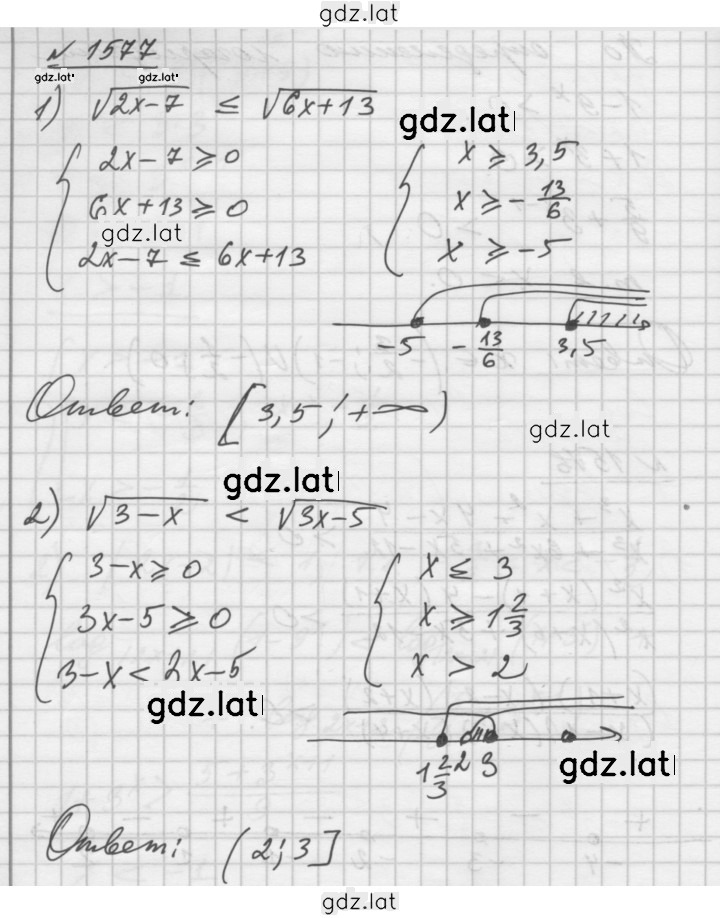 gdz.lat
№ 1577
gdz.lat gdz.lat
1) √(2x-7) ≤ √(6x+13)
gdz.lat
2x-7 ≥ 0
6x+13 ≥ 0
gdz.lat
2x-7 ≤ 6x+13
x ≥ 3,5
x ≥ -13/6
x ≥ -5
-5 -13/6 3,5
Ответ: [3,5; +∞)
gdz.lat
gdz.lat
2) √(3-x) < √(3x-5)
3-x ≥ 0
3x-5 ≥ 0
3-x < 2x-5
gdz.lat
x ≤ 3
x ≥ 1 2/3
x > 2
1 2/3 2 3
gdz.lat
Ответ: (2; 3]
gdz.lat